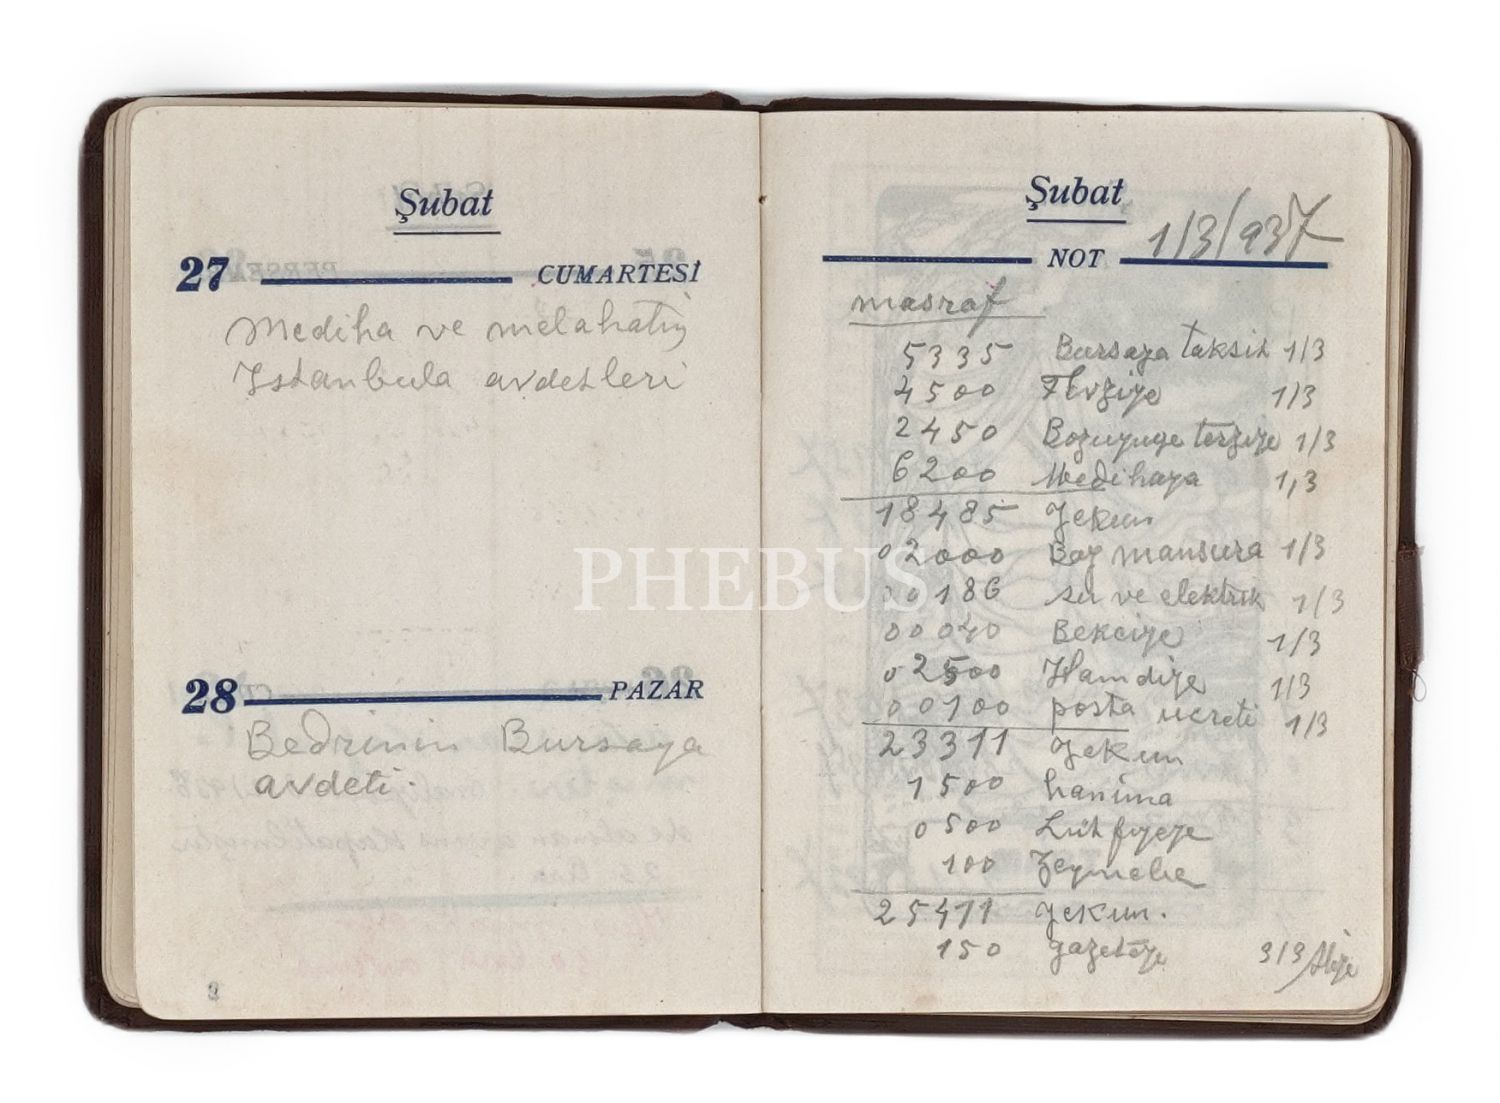 Şubat
27 CUMARTESİ
Mediha ve melahatin
Istanbula avdetleri
28 PAZAR
Bedrinin Bursaya
avdeti.
Şubat
NOT 1/3/937
masraf
5335 Bursaya taksit 1/3
4500 Fevziye 1/3
2450 Bozuyuge terziye 1/3
6200 Medihaya 1/3
18485 Yekun
02000 Bay mansura 1/3
00186 su ve elektrik 1/3
00040 Bekciye 1/3
02500 Hamdiye 1/3
00100 posta ucreti 1/3
23311 Yekun
1500 hanima
0500 Lutfiyeye
100 Zeynebe
25411 Yekun.
150 gazeteye 3/3
PHEBUS